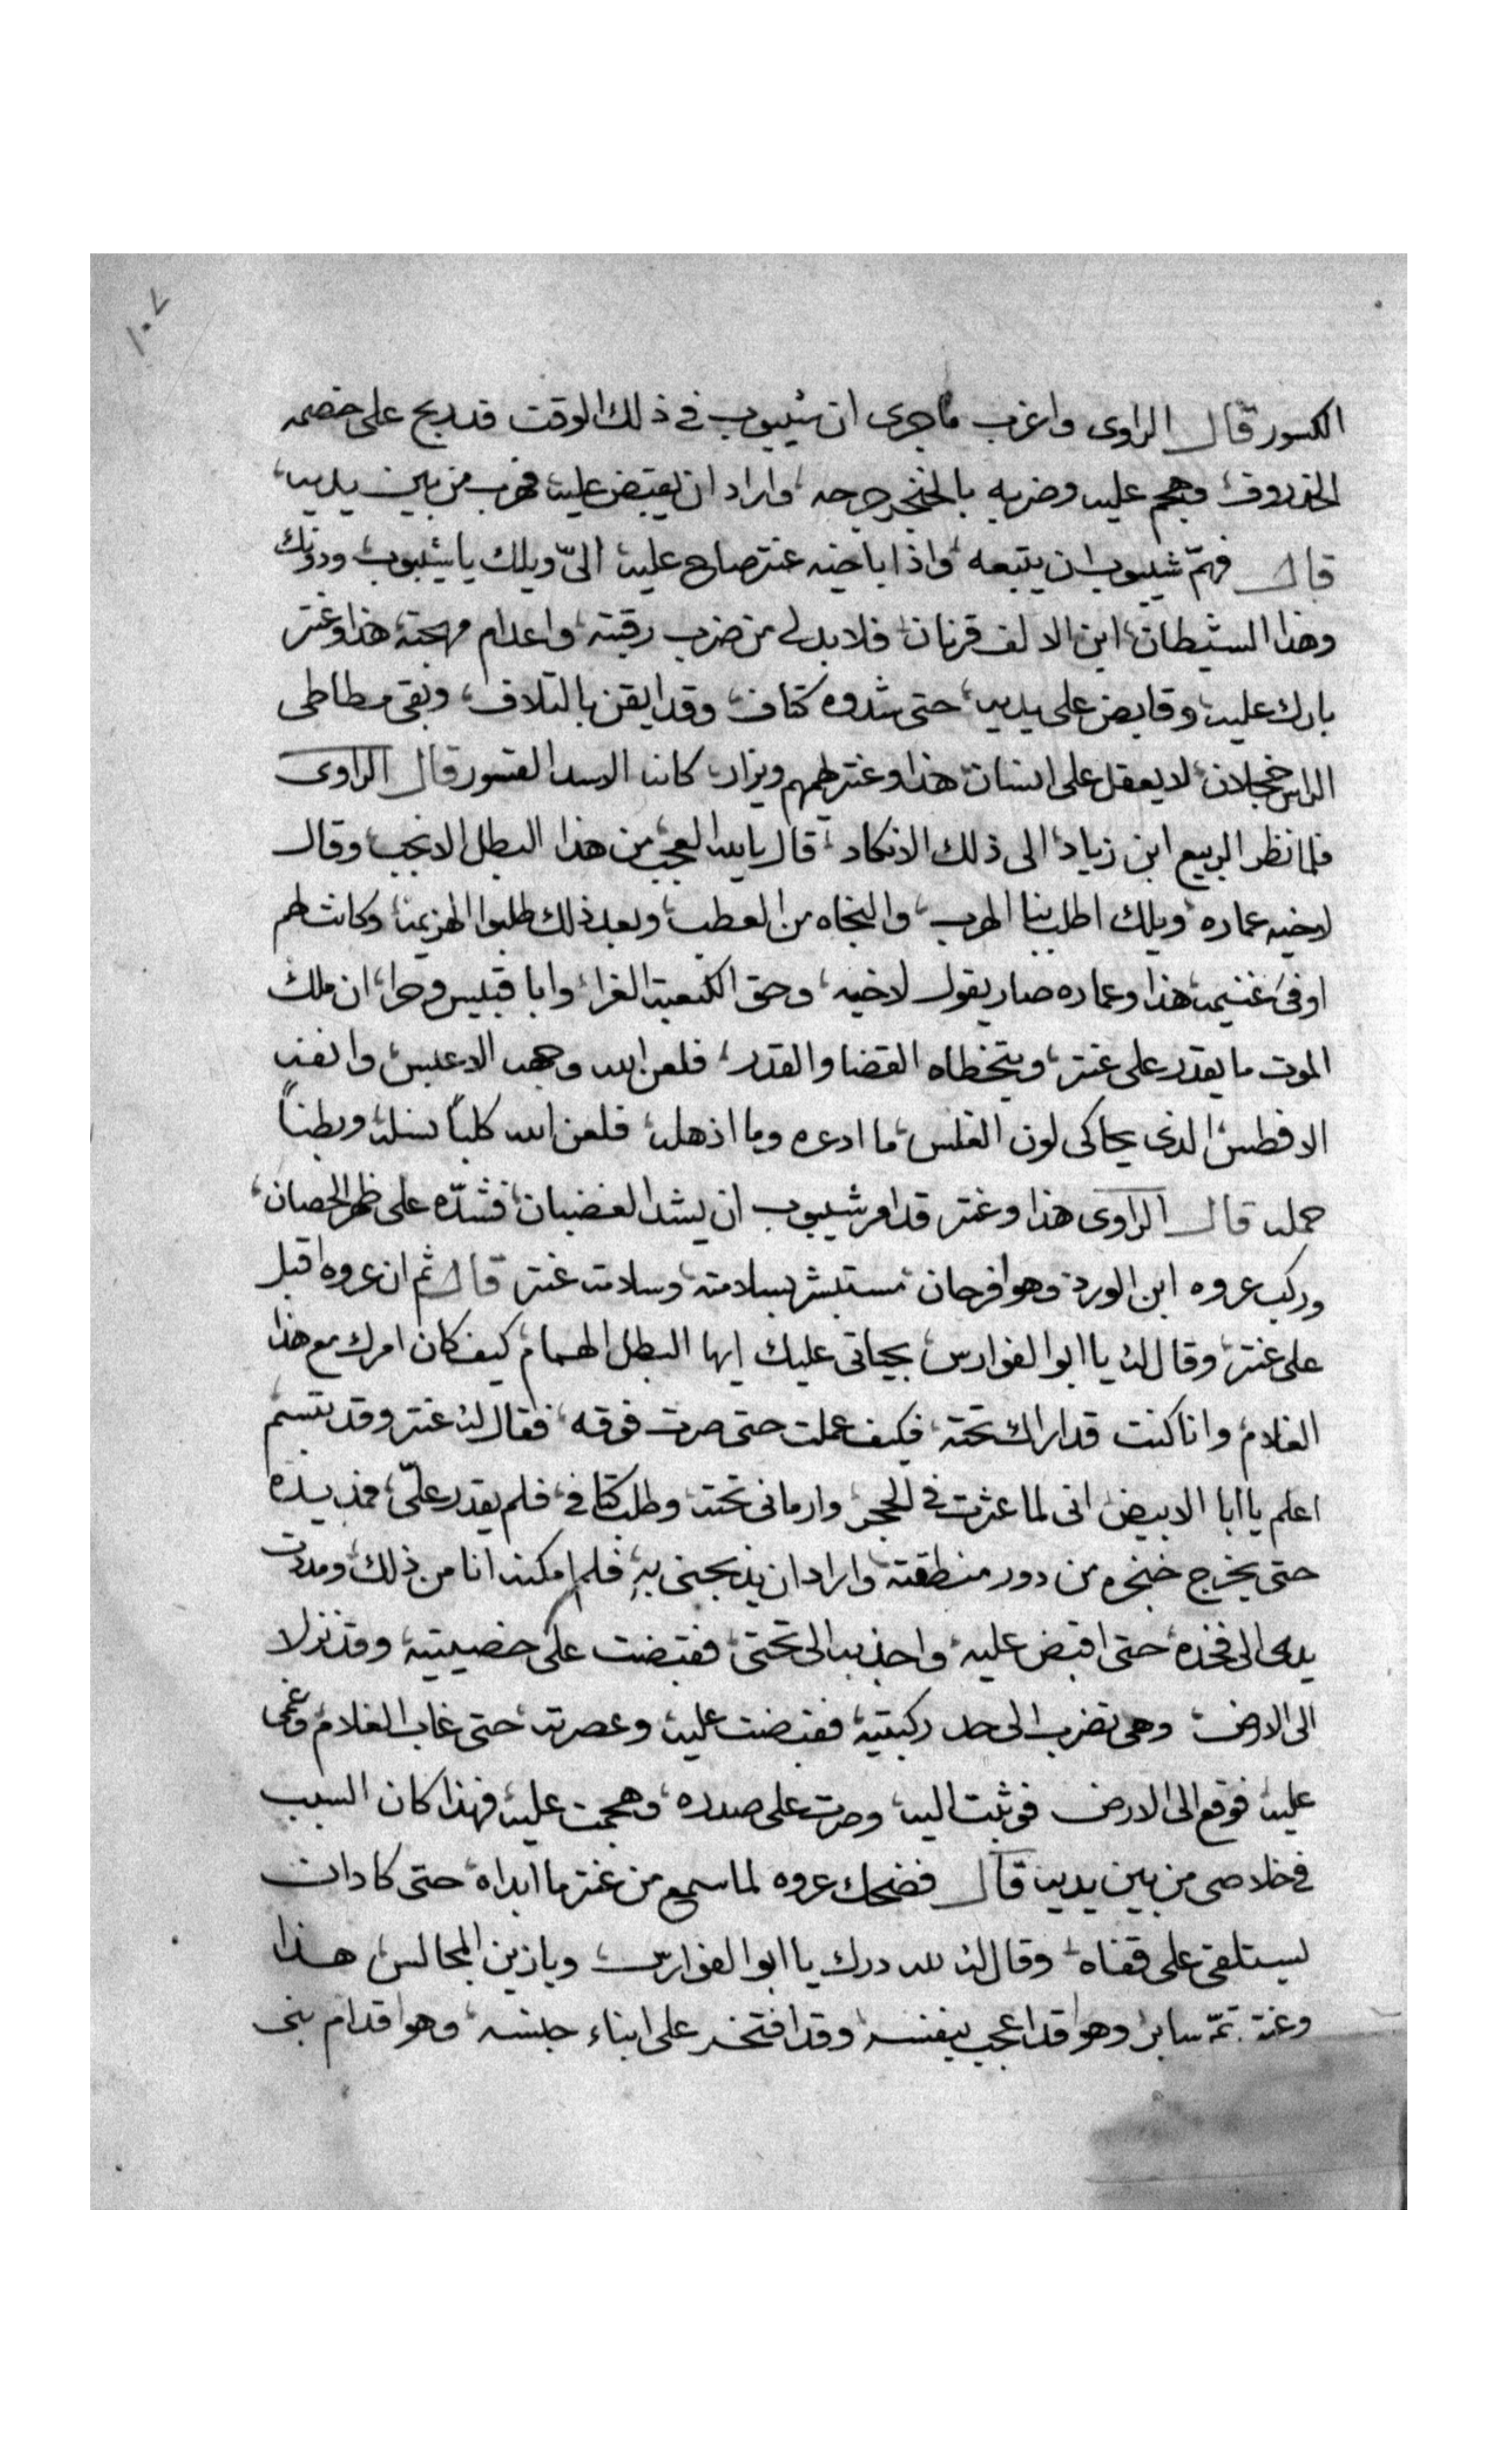 ١٠٧
الكسور قال الراوى واغرب ما جرى ان شيبوب فى ذلك الوقت قد ربح على خصمه
الخدروف وهجم عليه وضربه بالخنجر جرحه واراد ان يقبض عليه فهرب من بين يديه
قال فهمّ شيبوب ان يتبعه واذا باخيه عنتر صاح عليه الىّ ويلك يا شيبوب ودونك
وهذا الشيطان ابن الالف قرنان فلا بد لى من ضرب رقبته واعدام مهجته هذا وعنتر
بارك عليه وقابض على يديه حتى شدوه كتاف وقد ايقن بالتلاف وبقى مطاطى
الراس خجلان لا يعقل على انسان هذا وعنتر يهمهم ويزار كانه الاسد القسور قال الراوى
فلما نظر الربيع ابن زياد الى ذلك الانكاد قال يا لله العجب من هذا البطل الانجب وقال
لاخيه عماره ويلك اطلب بنا الهرب والنجاه من العطب وبعد ذلك طلبوا الهزيمه وكانت لهم
اوفى غنيمه هذا وعماره صار يقول لاخيه وحق الكعبة الغرا وابا قبيس وحرا ان ملك
الموت ما يقدر على عنتر ويتخطاه القضا والقدر فلعن الله وجهه الاعبس وانفه
الافطس الذى يحاكى لون الغلس ما ادعره وما اذهله فلعن الله كلباً نسله وبطناً
حمله قال الراوى هذا وعنتر قد امر شيبوب ان يشد الغضبان فشدّه على ظهر الحصان
وركب عروه ابن الورد وهو افرحان مستبشر بسلامته وسلامت عنتر قال ثم ان عروه اقبل
على عنتر وقال له يا ابو الفوارس بحياتى عليك ايها البطل الهمام كيف كان امرك مع هذا
الغلام وانا كنت قد اراك تحته فكيف عملت حتى صرت فوقه فقال له عنتر وقد تبسم
اعلم يا ابا الابيض انى لما عثرت فى الحجر وارمانى تحته وطلب كتافى فلم يقدر علىّ فمد يده
حتى يخرج خنجره من دور منطقته واراد ان يذبحنى به فلم امكنه انا من ذلك ومديت
يدى الى فخده حتى اقبض عليه واجذبه الى تحتى فقبضت على خصيتيه وقد نزلا
الى الارض وهى تضرب الى حد ركبتيه فقبضت عليه وعصرته حتى غاب الغلام وغمى
عليه فوقع الى الارض فوثبت اليه وصرت على صدره وهجمت عليه فهذا كان السبب
فى خلاصى من بين يديه قال فضحك عروه لما سمع من عنتر ما ابداه حتى كاد ان
يستلقى على قفاه وقال له لله درك يا ابو الفوارس ويا زين المجالس هذا
وعنتر تمّ ساير وهو قد اعجب بنفسه وقد افتخر على ابناء جنسه وهو اقدام بنى